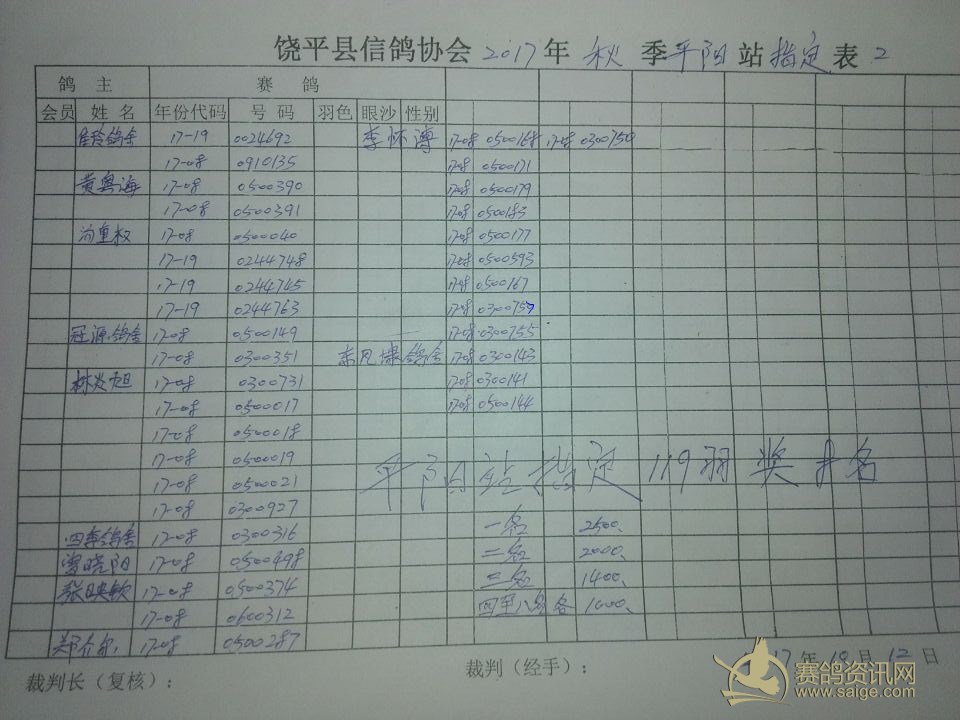 饶平县信鸽协会 2017年 秋 季 平阳 站 指定 表 2
鸽 主 赛 鸽
会员 姓 名 年份代码 号 码 羽色 眼沙 性别
17-19 0024692 李怀溥 17-08 0500168 17-08 0300750
17-08 0910135 17-08 0500171
黄粤海 17-08 0500390 17-08 0500179
17-08 0500391 17-08 0500183
17-08 0500040 17-08 0500177
17-19 0244748 17-08 0500593
17-19 0244745 17-08 0500167
17-19 0244763 17-08 0300757
冠源鸽舍 17-08 0500149 17-08 0300755
17-08 0300351 鸽舍 17-08 0300143
17-08 0300731 17-08 0300141
17-08 0500017 17-08 0500144
17-08 0500018
17-08 0500019
17-08 0500021
17-08 0300927
平阳站指定 119羽 奖 8名
四季鸽舍 17-08 0300316 一名 2500、
曾晓阳 17-08 0500498 二名 2000、
张映钦 17-08 0500374 三名 1400、
17-08 0600312 四至八名 各 1000、
17-08 0500287
17年 10月 12日
裁判长（复核）： 裁判（经手）：
赛鸽资讯网
www.saige.com